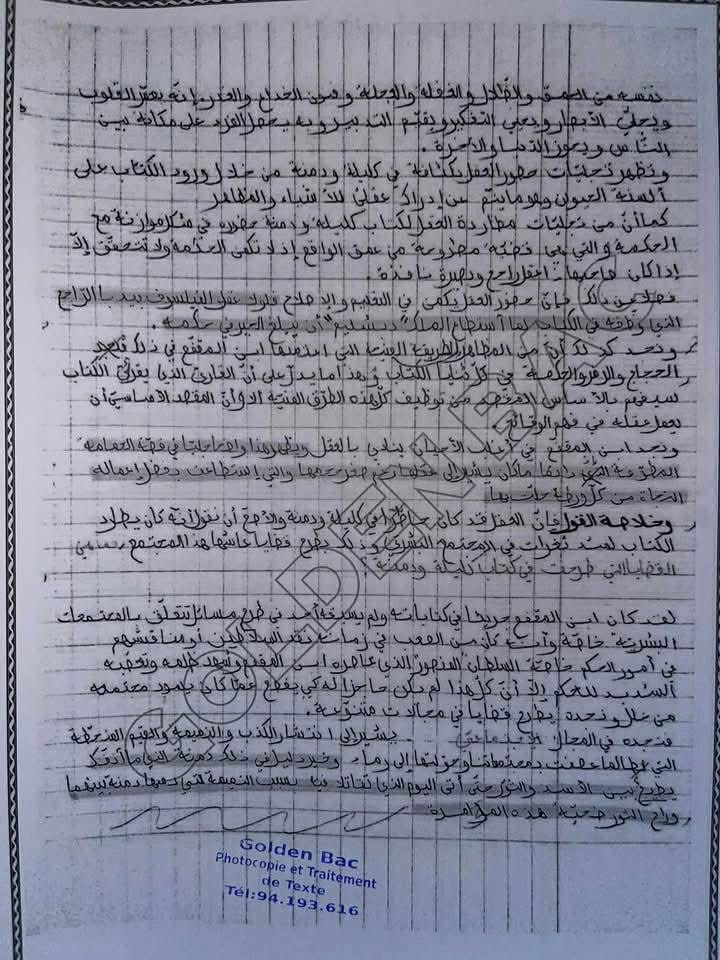 نفسه من الحمق و والغفلة والعجلة وفنون الخداع و إنّه يعمّر القلوب
ويجلي الأبصار ويحيي التفكير ويقيّم التدبير وبه يحصل الفرد على مكانة بين
النّاس ويحوز الدنيا والآخرة.
وتظهر تجليات حضور العقل بكثافة في كليلة ودمنة من خلال ورود الكتاب على
ألسنة الحيوان وهو ما ينمّ عن إدراك عقلي للأشياء والمظاهر
كما أنّ من تجليّات العقل لكتاب كليلة ودمنة حضوره في شكل موازنة مع
الحكمة والتي هي قضيّة مطروحة من عمق الواقع إذ لا تكمن الحكمة ولا تتحقق إلاّ
إذا كان صاحبها ذا عقل راجح وبصيرة نافذة.
فضلا عن ذلك فإنّ حضور العقل يكمن في التعليم والإصلاح فلولا عقل الفيلسوف بيدبا الرّاجح
الذي وظفه في الكتاب لما استطاع الملك "دبشليم" أن يبلغ في حكمه.
ونجد كذلك أنّ من المظاهر الطريفة الفنيّة التي اعتمدها ابن المقفع في ذلك نجد
الحجاج والرمز والحكمة في كلّ ثنايا الكتاب وهذا ما يدلّ على أنّ القارئ الذي يقرأ في الكتاب
سيفهم بالأساس المقصد من توظيف كلّ هذه الطرق الفنيّة ألا وأنّ المقصد الأساسيّ أن
يعمل عقله في فهم الوقائع.
ونجد ابن المقفع في أغلب الأحيان ينادي بالعقل ويظهر هذا واضحا جليا في قصّة الحمامة
المطوّقة التّي دائما ما كان يشير إلى عقلها رغم صغر حجمها والتي استطاعت بفضل إعماله
النجاة من كلّ ورطة حلّت بها
وخلاصة القول فإنّ العقل قد كان حاضرا في كليلة ودمنة والأصح أن نقول أنه كان يطارد
الكتاب لسدّ ثغرات في المجتمع البشري وذلك بطرح قضايا عاشها هذا المجتمع
القضايا التي طرحت في كتاب كليلة ودمنة؟
لقد كان ابن المقفع جريئا في كتاباته ولم يسبقه أحد في طرح مسائل تتعلّق بالمجتمعات
البشريّة خاصّة وأنّه كان من الصعب في زمانه نقد السلاطين أو مناقشتهم
في أمور الحكم خاصّة السلطان المنصور الذي عاصره ابن المقفع وشهد ظلمه وتعصّبه
الشديد للحكم إلاّ أنّ كلّ هذا لم يكن حاجزا له كي يقطع عمّا كان يسود مجتمعه
من خلل ونجده يطرح قضايا في مجالات متنوّعة.
فنجده في المجال الاجتماعي يشير إلى انتشار الكذب والنميمة والقيم المنحطّة
التي لطالما عصفت بالمجتمعات وحولتها إلى رماد وخير دليل في ذلك دمنة الذي ما انفكّ
يطرح بين الأسد والثور حتّى أتى اليوم الذي تقاتلا فيه بسبب النميمة التي دسّها دمنة بينهما
وراح الثور ضحيّة هذه المؤامرة
GOLDEN BAC
Golden Bac
Photocopie et Traitement
de Texte
Tél:94.193.616